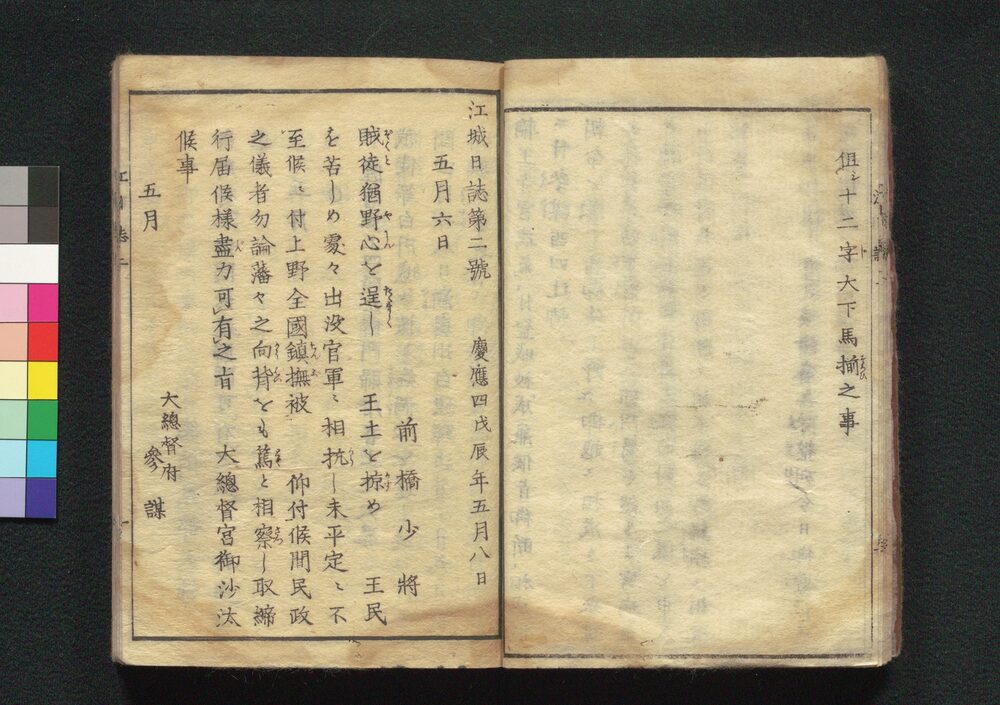 但シ十二字大下馬揃之事
江城日誌第二號 慶應四戊辰年五月八日
五月六日
前橋少將
賊徒猶野心を逞し 王土を掠め 王民
を苦しめ處々出没官軍ニ相抗し未平定ニ不
至候ニ付上野全國鎮撫被 仰付候間民政
之儀者勿論藩々之向背をも篤と相察し取締
行届候樣盡力可有之旨 大總督宮御沙汰
候事
五月
大總督府
參謀